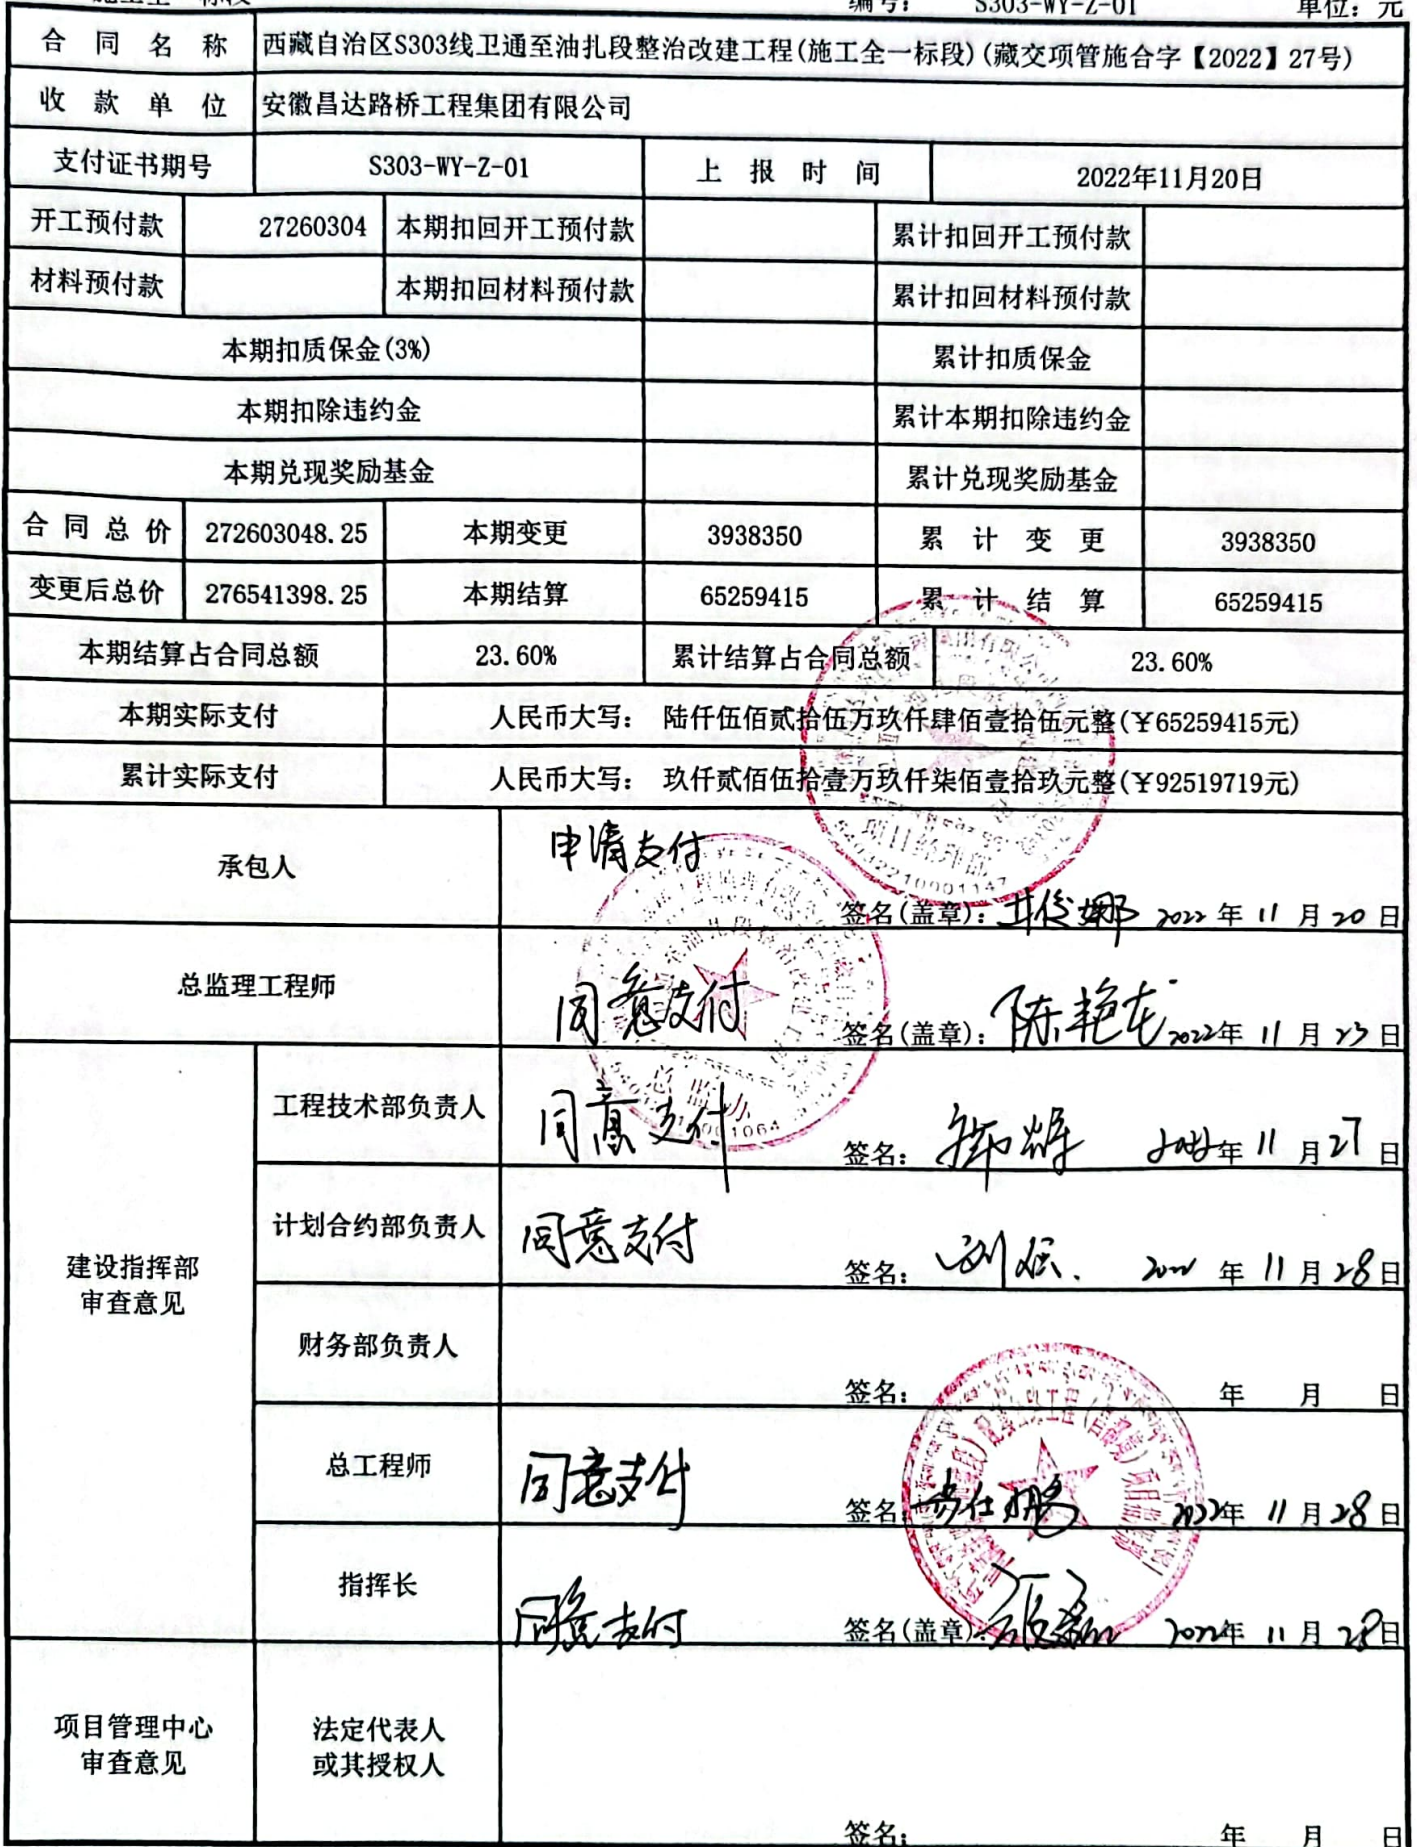 编号： S303-WY-Z-01 单位：元
合同名称 西藏自治区S303线卫通至油扎段整治改建工程(施工全一标段)(藏交项管施合字【2022】27号)
收款单位 安徽昌达路桥工程集团有限公司
支付证书期号 S303-WY-Z-01 上报时间 2022年11月20日
开工预付款 27260304 本期扣回开工预付款 累计扣回开工预付款
材料预付款 本期扣回材料预付款 累计扣回材料预付款
本期扣质保金(3%) 累计扣质保金
本期扣除违约金 累计本期扣除违约金
本期兑现奖励基金 累计兑现奖励基金
合同总价 272603048.25 本期变更 3938350 累计变更 3938350
变更后总价 276541398.25 本期结算 65259415 累计结算 65259415
本期结算占合同总额 23.60% 累计结算占合同总额 23.60%
本期实际支付 人民币大写： 陆仟伍佰贰拾伍万玖仟肆佰壹拾伍元整(￥65259415元)
累计实际支付 人民币大写： 玖仟贰佰伍拾壹万玖仟柒佰壹拾玖元整(￥92519719元)
项目经理部
承包人 申请支付
签名(盖章)： 2022年11月20日
总监理工程师 同意支付 签名(盖章)：陈艳龙 2022年11月23日
总监办
工程技术部负责人 同意支付 签名： 2022年11月27日
计划合约部负责人 同意支付 签名：刘 2022年11月28日
建设指挥部
审查意见
财务部负责人
签名： 年 月 日
总工程师 同意支付 签名： 2022年11月28日
指挥长 同意支付 签名(盖章)： 2022年11月28日
项目管理中心
审查意见
法定代表人
或其授权人
签名： 年 月 日